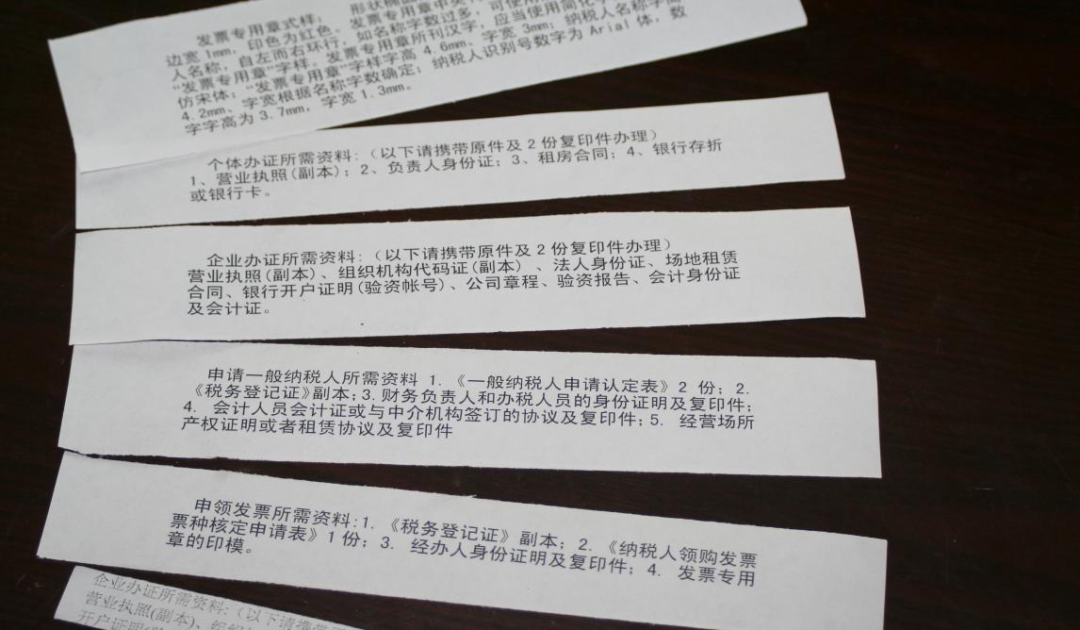 发票专用章式样： 形状椭圆
边宽 1mm，印色为红色。发票专用章中央
人名称，自左而右环行，如名称字数过多，可使用
“发票专用章”字样。发票专用章所刊汉字，应当使用简化字
仿宋体；“发票专用章”字样字高 4.6mm、字宽 3mm；纳税人名称字高
4.2mm、字宽根据名称字数确定；纳税人识别号数字为 Arial 体，数
字字高为 3.7mm，字宽 1.3mm。
个体办证所需资料：（以下请携带原件及 2 份复印件办理）
1、营业执照(副本)；2、负责人身份证；3、租房合同；4、银行存折
或银行卡。
企业办证所需资料：（以下请携带原件及 2 份复印件办理）
营业执照(副本)、组织机构代码证(副本) 、法人身份证、场地租赁
合同、银行开户证明(验资帐号)、公司章程、验资报告、会计身份证
及会计证。
申请一般纳税人所需资料 1.《一般纳税人申请认定表》2 份；2.
《税务登记证》副本；3.财务负责人和办税人员的身份证明及复印件；
4. 会计人员会计证或与中介机构签订的协议及复印件；5. 经营场所
产权证明或者租赁协议及复印件
申领发票所需资料：1.《税务登记证》副本；2.《纳税人领购发票
票种核定申请表》1 份；3. 经办人身份证明及复印件；4. 发票专用
章的印模。
企业办证所需资料：（以下请携带
营业执照(副本)、组织
开户证明(验资